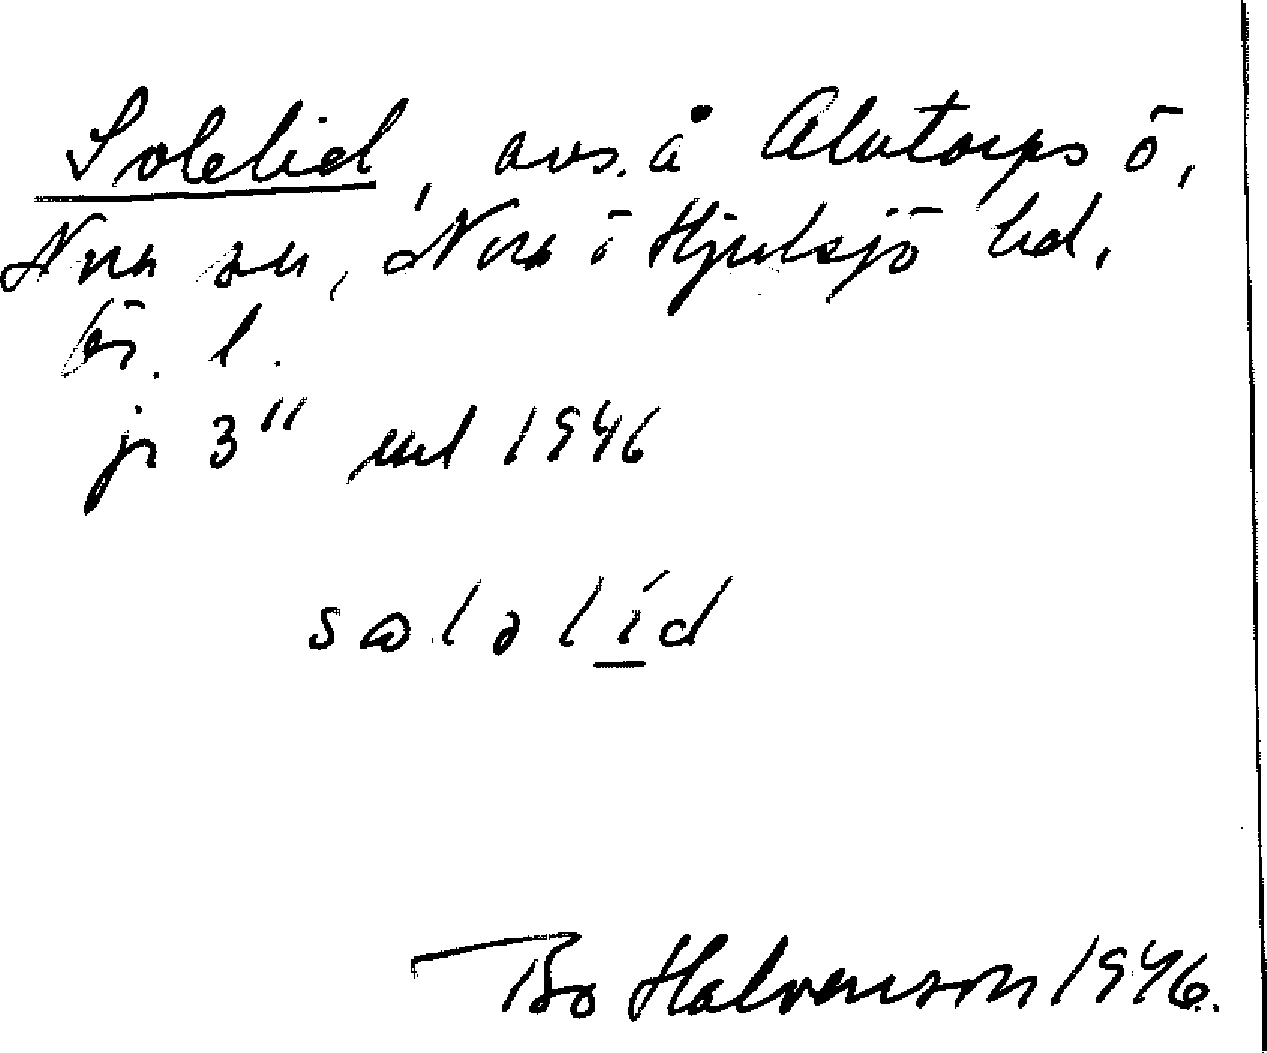 Solelid, avs. å Alntorps ö,
Nora sn, Nora o Hjulsjö hd,
Ör. l.
jr 3" uul 1946
sωlǝlíd
Bo Halvarson 1946.